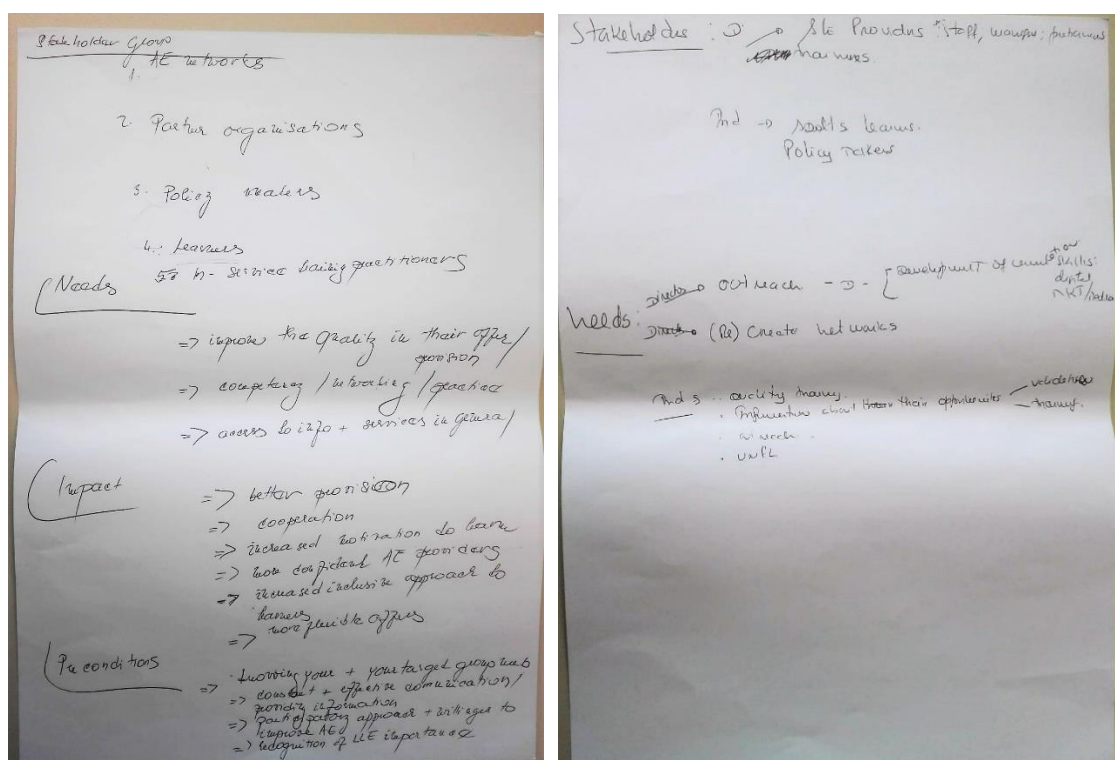 Stakeholder Group
1. AE networks
2. Partner organisations
3. Policy makers
4. Learners
5. In-service training practitioners
Needs
=> improve the quality in their offer/
provision
=> competency / networking / practice
=> access to info + services in general
Impact
=> better provision
=> cooperation
=> increased motivation to learn
=> more confident AE providers
=> increased inclusive approach to
learners
=> more flexible offers
Preconditions
=> knowing your + your target group needs
=> constant + effective comunication/
providing information
=> participatory approach + willingness to
improve AE
=> recognition of importance
Stakeholder : D staff,
trainers.
Ind -> Adults learners.
Policy makers
Needs:
Direct outreach - D - Development of skills:
digital
Direct (Re) Create networks
Ind quality training.
. Information about their opportunities validation
training.
. outreach.